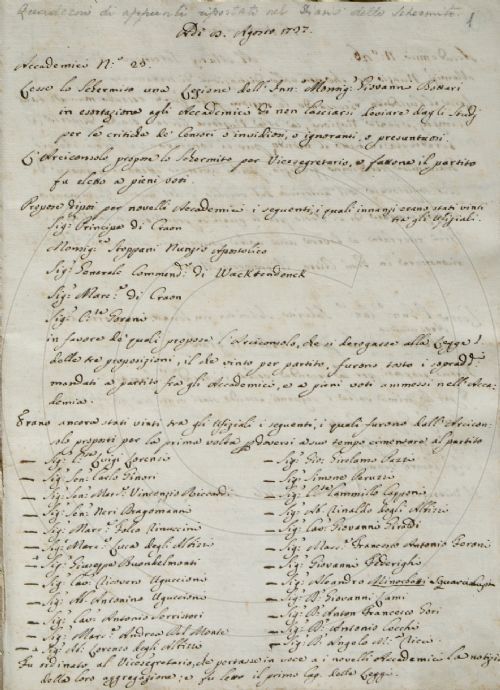 Quaderni di appunti riportati nel Diario dello Schermito.
1
Adì 3. Agosto 1737.
Accademici N.° 25.
Lesse lo Schermito una Lezione dell'Inn.° Monsig.r Giovanni Bottari
in esortazione agli Accademici di non lasciarsi sviare dagli Studj
per le critiche de' Censori o invidiosi, o ignoranti, o presuntuosi.
L'Arciconsolo propose lo Schermito per Vicesegretario, e fattone il partito
fu eletto a pieni voti.
Propose dipoi per novelli Accademici i seguenti, i quali innanzi erano stati vinti
tra gli Ufiziali.
Sig.r Principe di Craon
Monsig.r Stoppani Nunzio Apostolico
Sig.r Generale Commend.r di Wacktendonck
Sig.r Marc.e di Craon
Sig.r C.te Lorenzi
in favore de' quali propose l'Arciconsolo, che si derogasse alla Legge
delle tre proposizioni, il che vinto per partito, furono tutti i sopradd.i
mandati a partito fra gli Accademici, e a pieni voti ammessi nell'Acca-
demia.
Erano ancora stati vinti tra gli Ufiziali i seguenti, i quali furono dall'Arcicon-
solo proposti per la prima volta doversi a suo tempo cimentare al partito
Sig.r Luigi Lorenzi
Sig.r Sen. Carlo Ginori
Sig.r Sen. Mar. Vincenzio Riccardi
Sig.r Sen. Neri Dragomanni
Sig.r Marc.e Folco Rinuccini
Sig.r Marc.e Luca degli Albizi
Sig.r Giuseppe Buondelmonti
Sig.r Cav. Ricovero Uguccioni
Sig.r Ab. Antonino Uguccioni
Sig.r Cav. Antonio Serristori
Sig.r Marc.e Andrea Del Monte
Sig.r Ab. Lorenzo degli Albizi
Sig.r Gio. Girolamo Pazzi
Sig.r Simone Peruzzi
Sig.r C.te Cammillo Capponi
Sig.r Ab. Rinaldo degli Albizi
Sig.r Cav. Giovanni
Sig.r Marc.e Francesco Antonio Feroni
Sig.r Giovanni Federighi
Sig.r Aleandro Minorbetti
Sig.r D. Giovanni Lami
Sig.r D. Anton Francesco Gori
Sig.r D. Antonio Cocchi
Sig.r D. Angelo M.a Ricci
Fu ordinato, al Vicesegretario, che portasse in voce a i novelli Accademici la notizia
della loro aggregazione: e fu letto il primo Cap. delle Leggi.